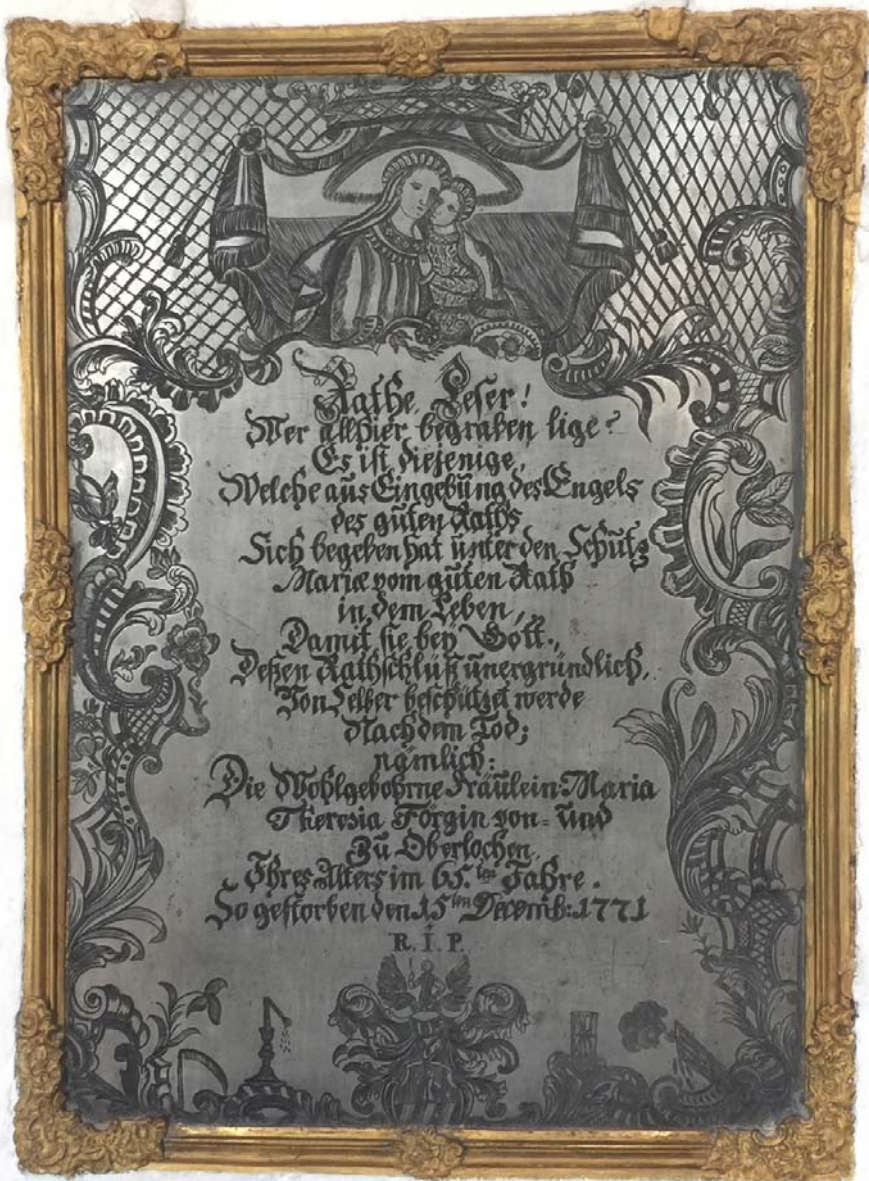 Rathe Leser!
Wer allhier begraben lige?
Es ist diejenige,
Welche aus Eingebung des Engels
des guten Raths
Sich begeben hat unter den Schutz
Mariæ vom guten Rath
in dem Leben,
Damit sie bey Gott,
Deßen Rathschluß unergründlich,
Von Selber beschützet werde
Nach dem Tod;
nämlich:
Die Wohlgebohrne Fräulein Maria
Theresia Förgin von- und
Zu Oberlochen,
Ihres Alters im 65.ten Jahre.
So gestorben den 15ten Decemb: 1771
R. I. P.